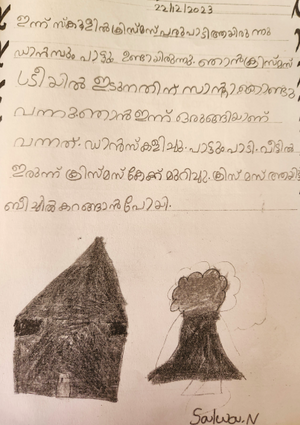 22/12/2023
ഇന്ന് സ്കൂളിൽ ക്രിസ്മസ് പരുപാടി ആയിരുന്നു
ഡാൻസും പാട്ടും ഉണ്ടായിരുന്നു. ഞാൻ ക്രിസ്മസ്
ട്രീയിൽ ഇടുന്നതിന്
വന്നു ഞാൻ ഇന്ന് ഒരുങ്ങിയാണ്
വന്നത്. ഡാൻസ് കളിച്ചു. പാട്ടും പാടി. വീട്ടിൽ
ഇരുന്ന് ക്രിമസ് കേക്ക് മുറിച്ചു. ക്രിസ് മസ് ആയിട്ട്
ബീച്ചിൽ കറങ്ങാൻ പോയി.
Salwa.N